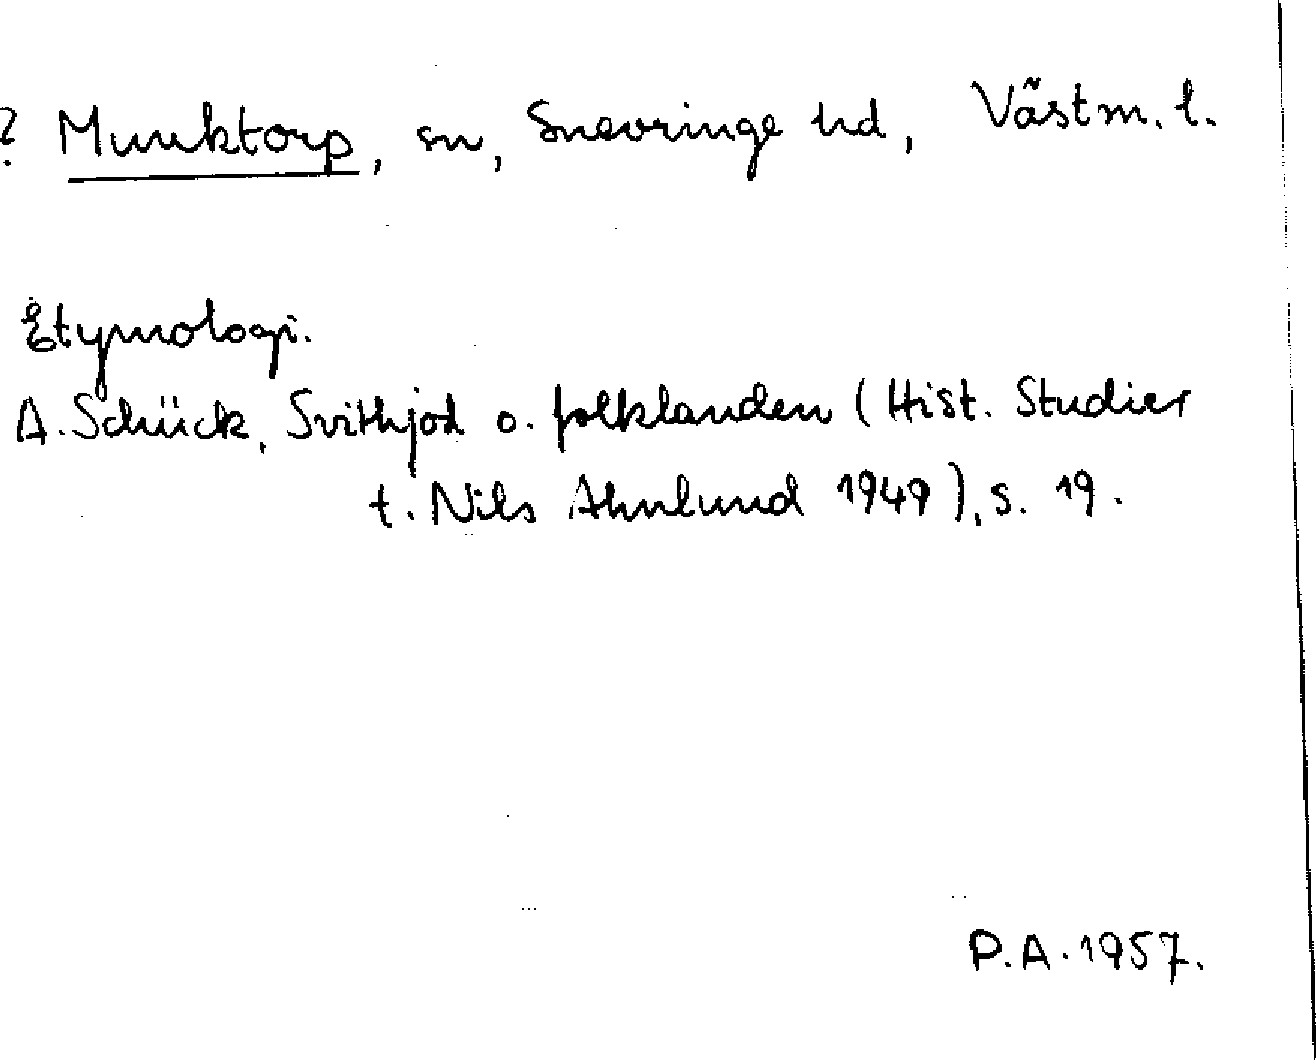 ? Munktorp, sn, Snevringe hd, Västm. l.
Etymologi.
A. Schück, Svithjod o. folklanden (Hist. Studier
t. Nils Ahnlund 1949), s. 19.
P.A. 1957.